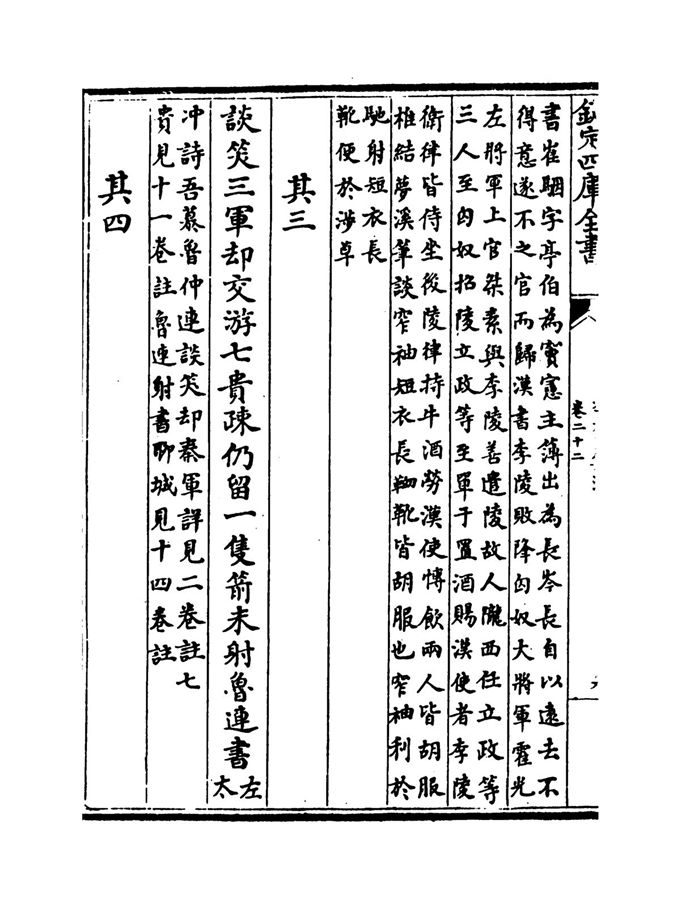 欽定四庫全書
卷二十二
書崔駰字亭伯為竇憲主簿出為長岑長自以遠去不
得意遂不之官而歸漢書李陵敗降匈奴大將軍霍光
左將軍上官桀素與李陵善遣陵故人隴西任立政等
三人至匈奴招陵立政等至單于置酒賜漢使者李陵
衛律皆侍坐後陵律持牛酒勞漢使博飲兩人皆胡服
椎結夢溪筆談窄袖短衣長靿靴皆胡服也窄袖利於
馳射短衣長
靴便於涉草
其三
談笑三軍却交游七貴疎仍留一隻箭未射魯連書
左太
冲詩吾慕魯仲連談笑却秦軍詳見二卷註七
貴見十一卷註魯連射書聊城見十四卷註
其四